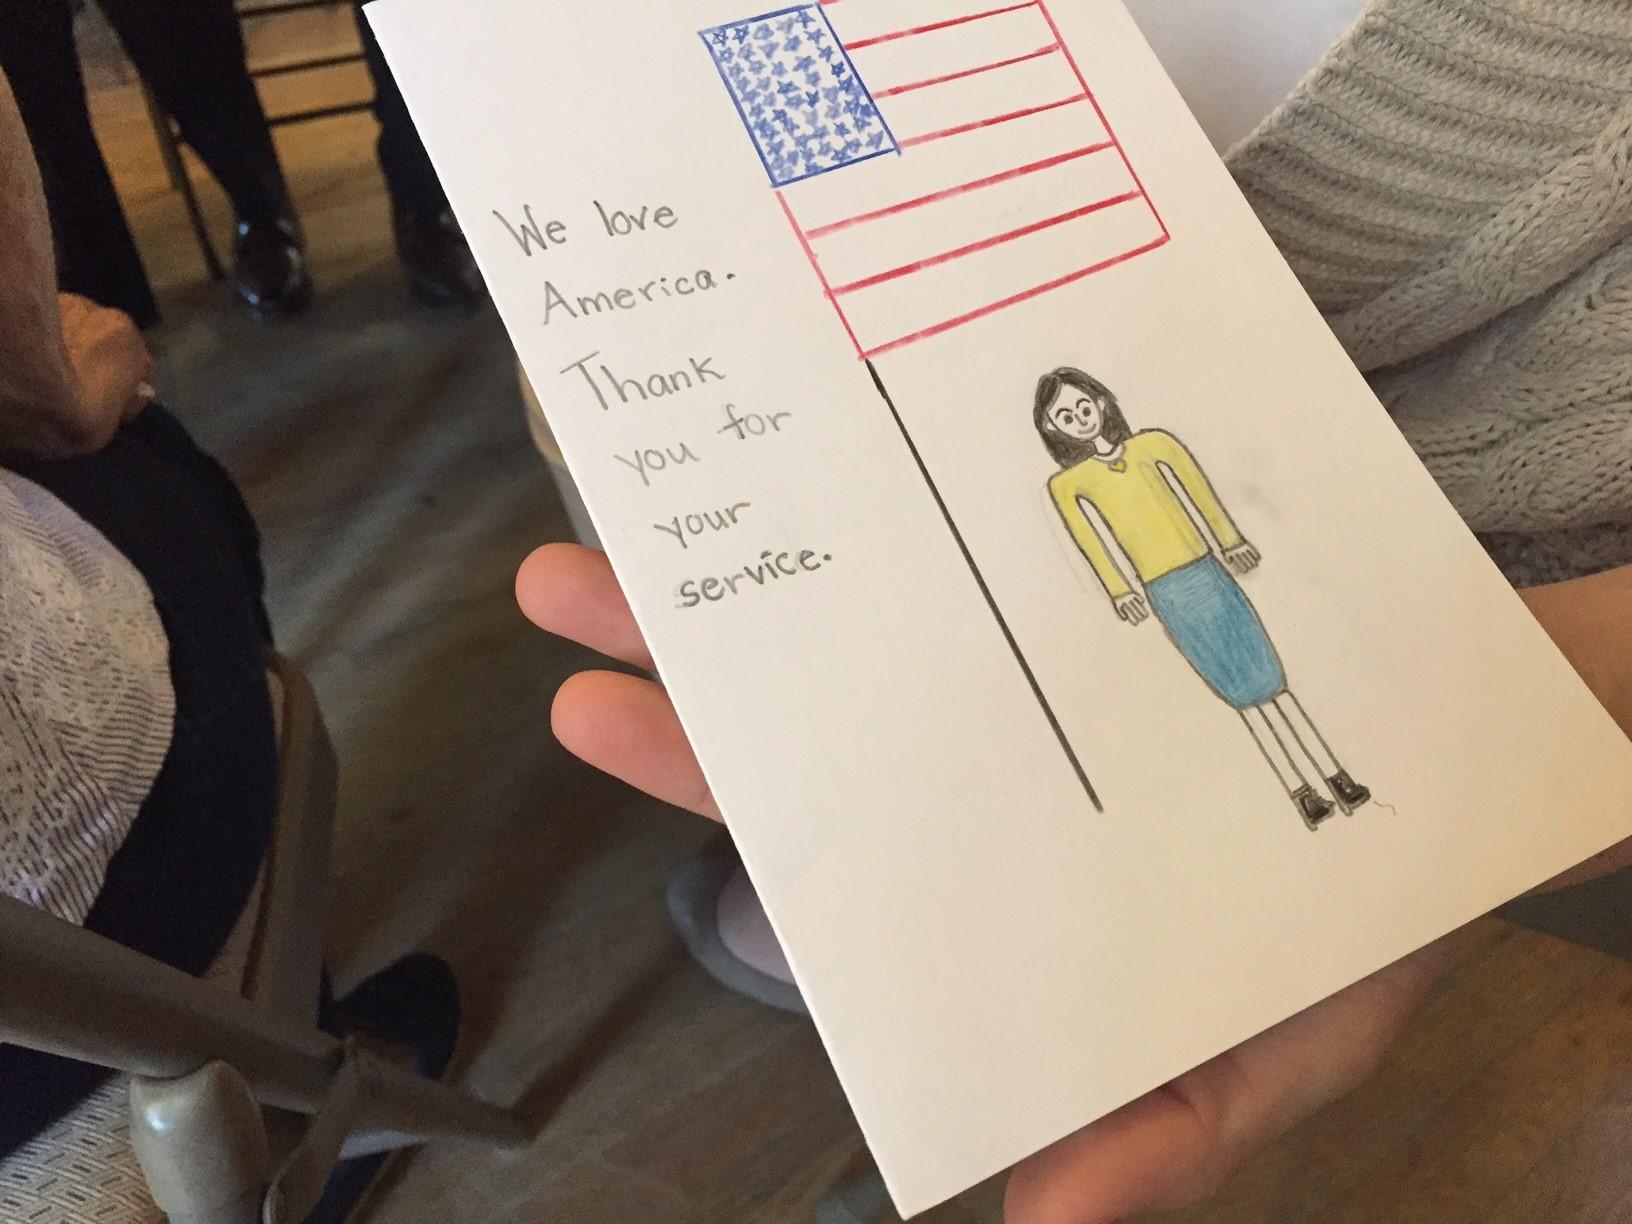 We love
America.
Thank
you for
your
service.